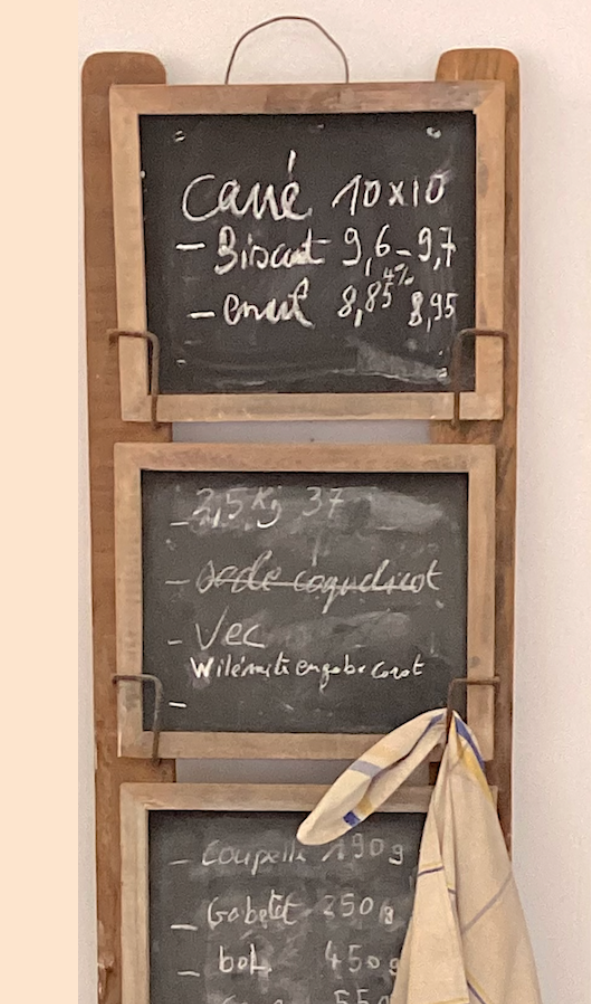 Carré 10x10
- Biscuit 9,6 - 9,7
4%
- email 8,85 8,95
- 2,5 Kg 37
- coquelicot
- Vec
Wilémite engobe
-
- Coupelle 190g
- Gobelet 250g
- bol. 450g
550